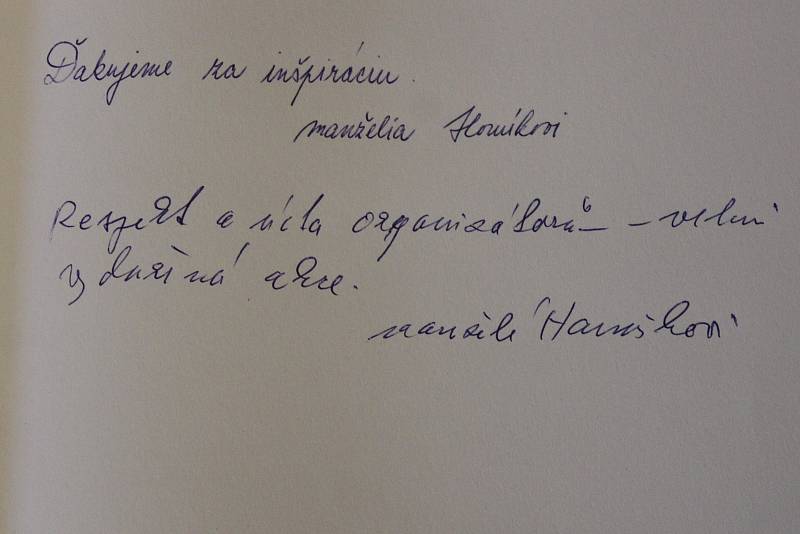 Ďakujeme za inšpiráciu.
manželia Horníkovi
Respekt a úcta organizátorů – velmi
zdařilá akce.
manželé Hamšíkovi